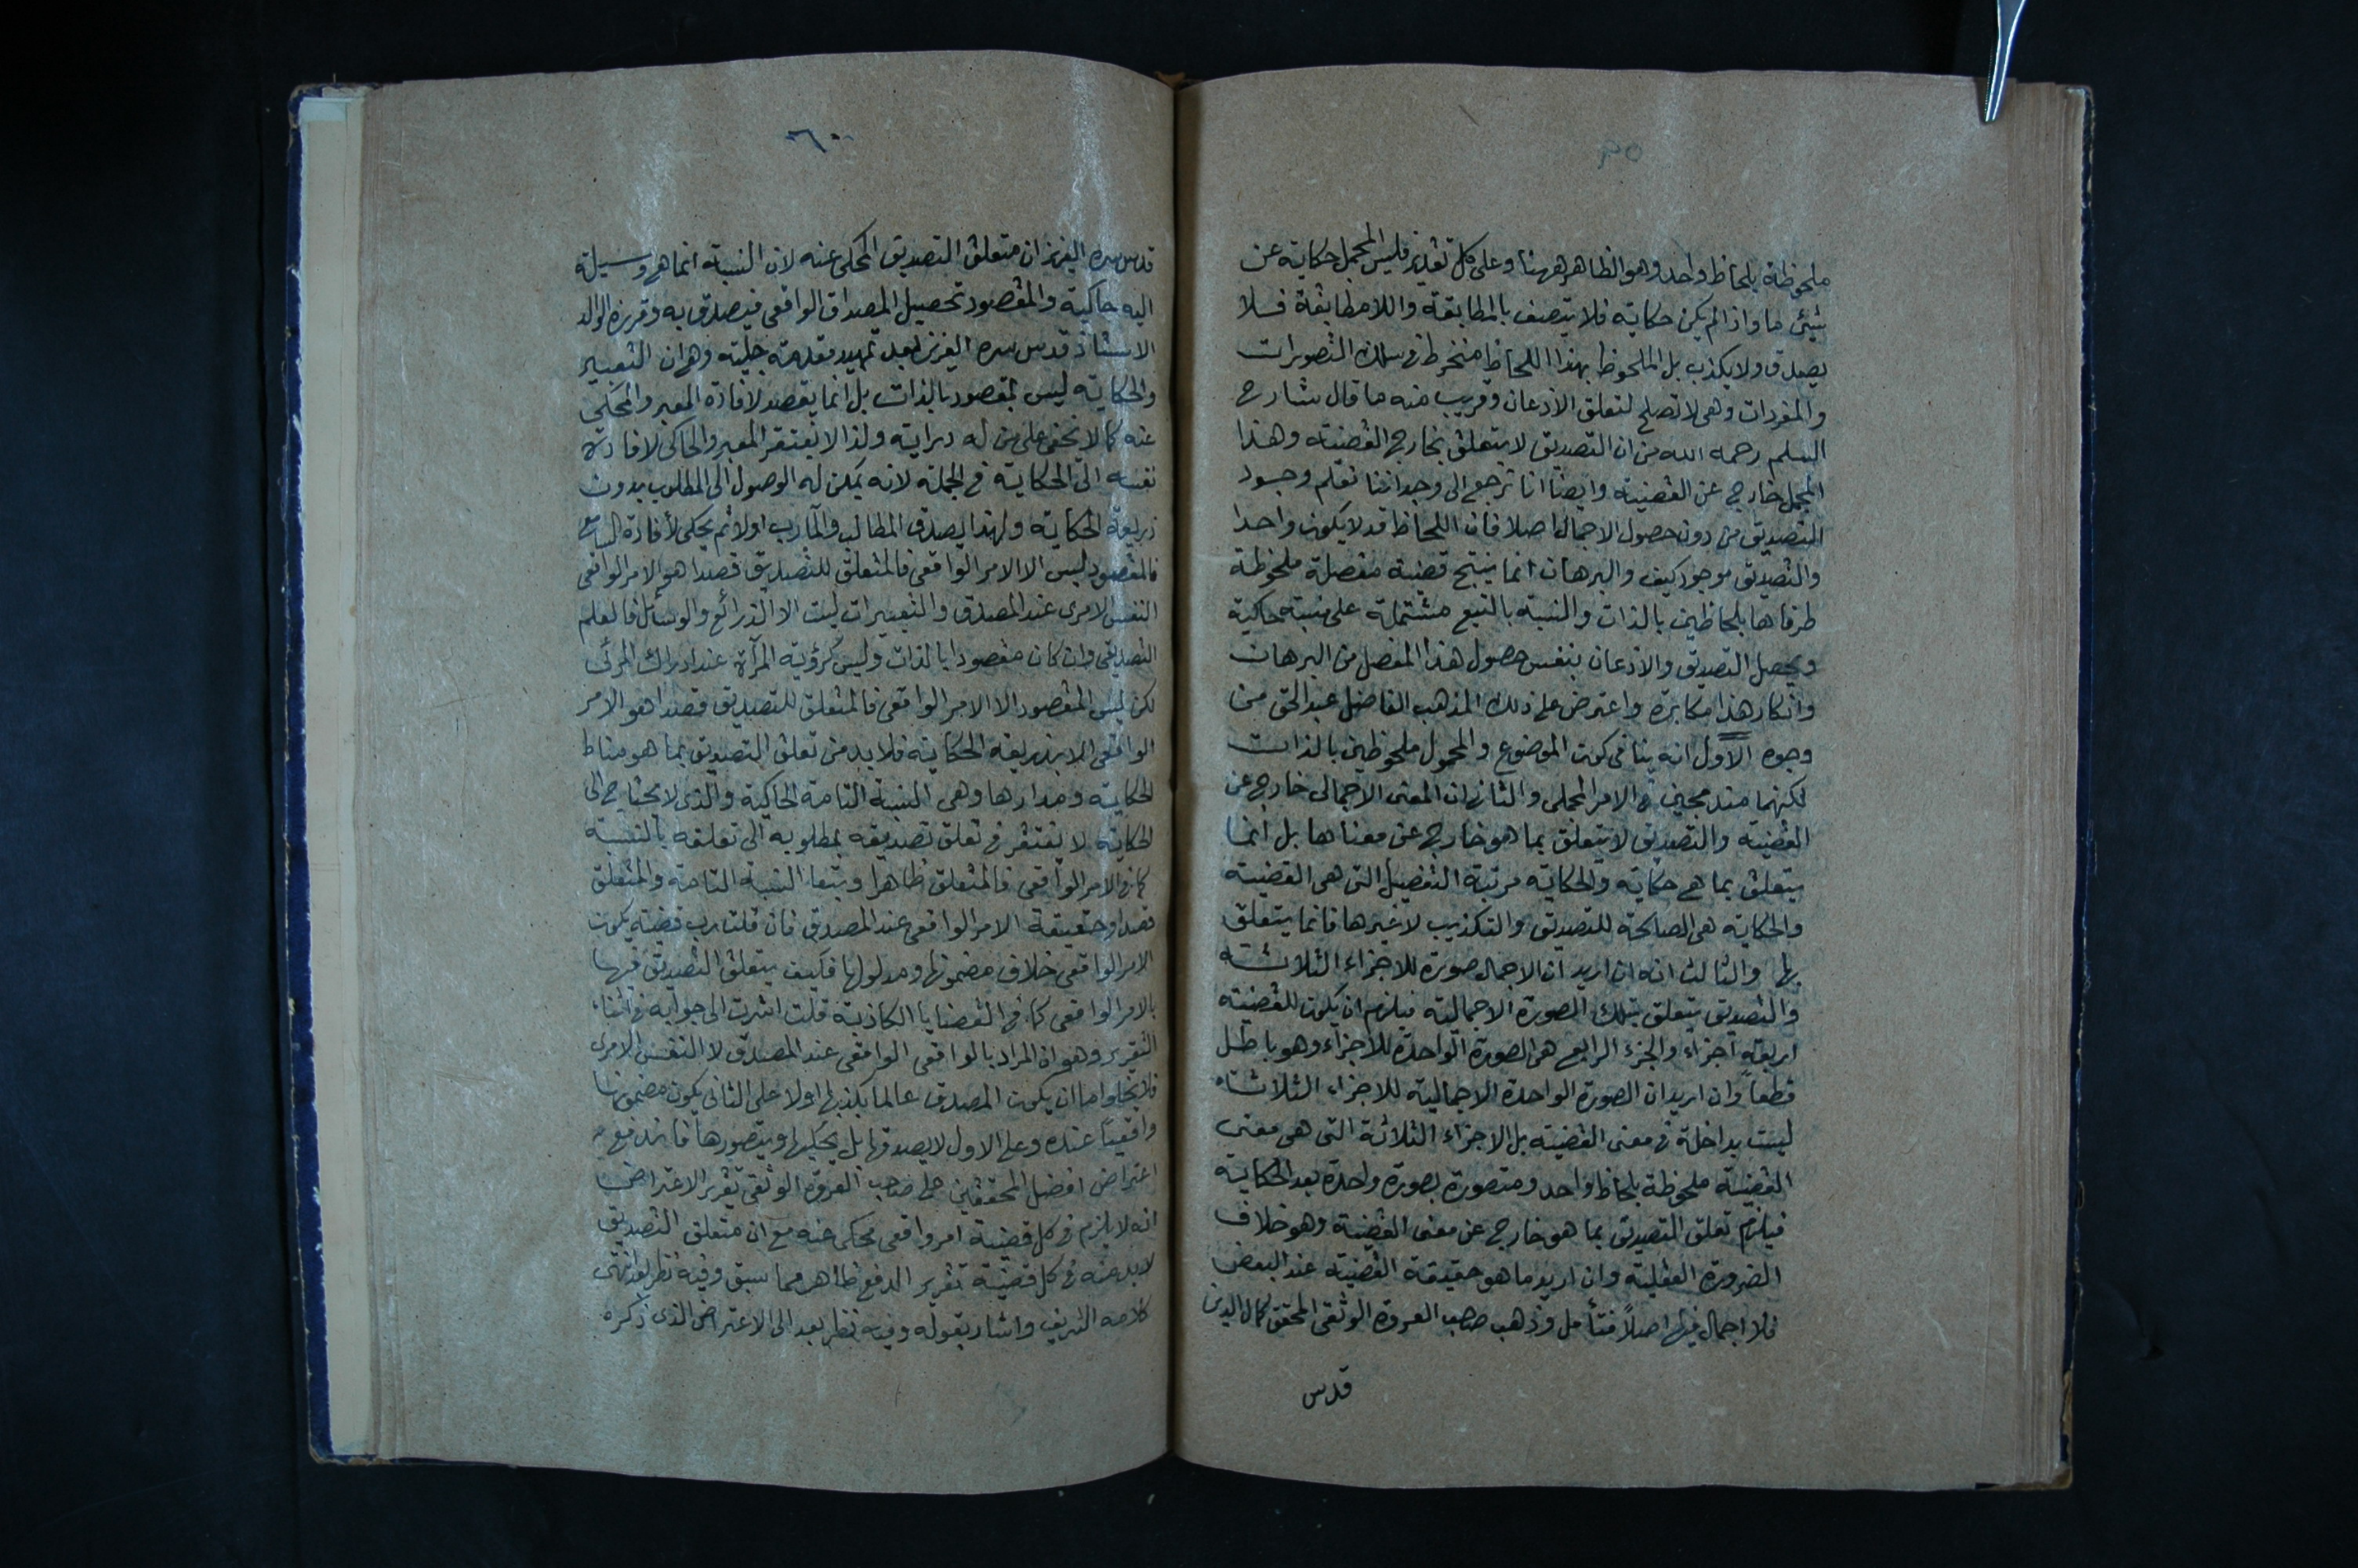 ملحوظة بلحاظ واحد وهو الظاهر ههنا وعلى كل تقدير فليس المجمل حكاية عن
شيئ ما واذا لم يكن حكاية فلا يتصف بالمطابقة واللا مطابقة فلا
يصدق ولا يكذب بل الملحوظ بهذا اللحاظ منخرط في سلك التصورات
والمفردات وهي لا تصلح لتعلق الاذعان وقريب منه ما قال شارح
السلم رحمه الله من ان التصديق لا يتعلق بخارج القضية وهذا
المجمل خارج عن القضية وايضًا انا نرجع الى وجداننا نعلم وجود
التصديق من دون حصول الاجمال اصلا فان اللحاظ قد لا يكون واحدا
والتصديق موجود كيف والبرهان انما ينتج قضية مفصلة ملحوظة
طرفاها بلحاظين بالذات والنسبة بالتبع مشتملة على نسبة حاكية
ويحصل التصديق والاذعان بنفس حصول هذا المفصل من البرهان
وانكار هذا مكابرة واعترض على ذلك المذهب الفاضل عبد الحق من
وجوه الاول انه ينافي كون الموضوع والمحمول ملحوظين بالذات
لكنهما مندمجين في الامر المجملي والثاني ان المعنى الاجمالي خارج عن
القضية والتصديق لا يتعلق بما هو خارج عن معناها بل انما
يتعلق بما هي حكاية والحكاية مرتبة التفصيل التي هي القضية
والحكاية هي الصالحة للتصديق والتكذيب لا غيرها فانما يتعلق
بها والثالث انه ان اريد ان الاجمال صورة للاجزاء الثلاثة
والتصديق يتعلق بتلك الصورة الاجمالية فيلزم ان يكون للقضية
اربعة اجزاء والجزء الرابع هي الصورة الواحدة للاجزاء وهو باطل
قطعاً وان اريد ان الصورة الواحدة الاجمالية للاجزاء الثلاثة
ليست بداخلة في معنى القضية بل الاجزاء الثلاثة التي هي معنى
القضية ملحوظة بلحاظ واحد ومتصورة بصورة واحدة بعد الحكاية
فيلزم تعلق التصديق بما هو خارج عن معنى القضية وهو خلاف
الضرورة العقلية وان اريد ما هو حقيقة القضية عند البعض
فلا اجمال فيها اصلاً فتأمل وذهب صاحب العروة الوثقى المحقق كمال الدين
قدس
٦٠
قدس سره العزيز ان متعلق التصديق المحكي عنه لان النسبة انما هي وسيلة
اليه حاكية والمقصود تحصيل المصداق الواقعي فيصدق به وقرره الوالد
الاستاذ قدس سره العزيز بعد تمهيد مقدمة جلية وهي ان التعبير
والحكاية ليس بمقصود بالذات بل انما يقصد لافادة المعبر والمحكي
عنه كما لا يخفى على من له دراية ولذا لا يفتقر المعبر والحاكي لافادة
نفسه الى الحكاية في الجملة لانه يمكن له الوصول الى المطلوب بدون
ذريعة الحكاية ولهذا يصدق المطالب والمآرب اولا ثم يحكي لأفادة السامع
فالمقصود ليس الا الامر الواقعي فالمتعلق للتصديق قصدا هو الامر الواقعي
النفس الامري عند المصدق والتعبيرات ليست الا الذرائع والوسائل فالعلم
التصديقي وان كان مقصودا بالذات وليس كرؤية المرآة عند ادراك المرئي
لكن ليس المقصود الا الامر الواقعي فالمتعلق للتصديق قصدا هو الامر
الواقعي الا بذريعة الحكاية فلا بد من تعلق التصديق بما هو مناط
الحكاية ومدارها وهي النسبة التامة الحاكية والذي لا يحتاج الى
الحكاية لا يفتقر في تعلق تصديقه بمطلوبه الى تعلقه بالنسبة
كما في الامر الواقعي فالمتعلق ظاهرا وتبعا النسبة التامة والمتعلق
قصدا وحقيقة الامر الواقعي عند المصدق فان قلت رب قضية يكون
الامر الواقعي خلاف مضمونها ومدلولها فكيف يتعلق التصديق فيها
بالامر الواقعي كما في القضايا الكاذبة قلت اشرت الى جوابه في اثناء
التقرير وهو ان المراد بالواقعي الواقعي عند المصدق لا النفس الامري
فلا يخلو اما ان يكون المصدق عالما بكذبها اولا على الثاني يكون مضمونها
واقعيًا عنده وعلى الاول لا يصدقها بل يحكيها ويتصورها فاندفع
اعتراض افضل المحققين على صاحب العروة الوثقى تقرير الاعتراض
انه لا يلزم في كل قضية امر واقعي محكي عنه مع ان متعلق التصديق
لا بد منه في كل قضية تقرير الدفع ظاهر مما سبق وفيه نظر بعد انتهى
كلامه الشريف واشار بقوله وفيه نظر بعد الى الاعتراض الذي ذكره